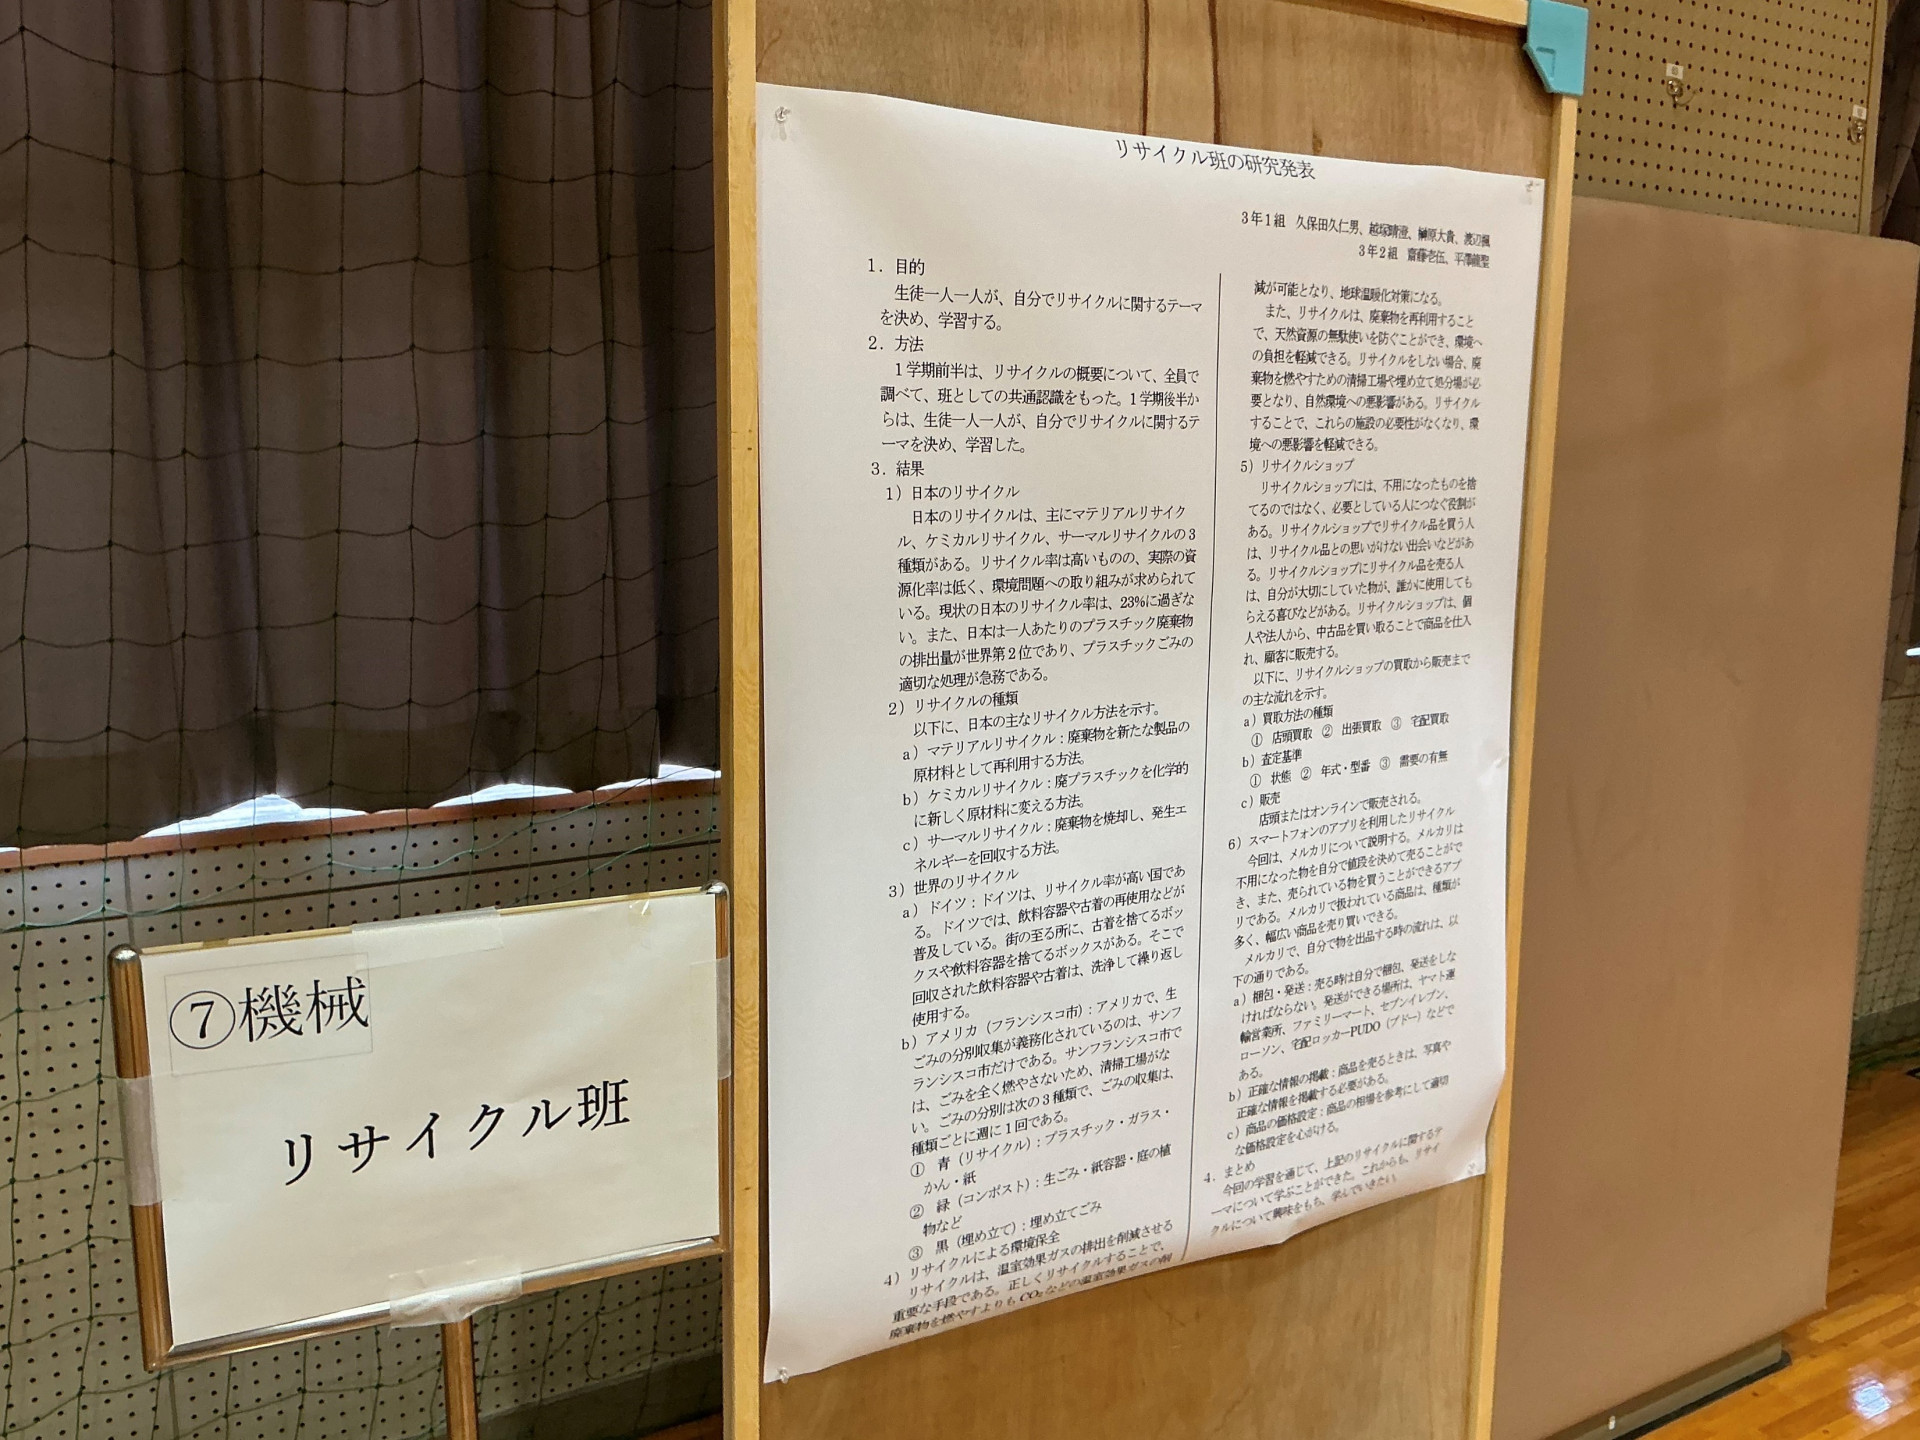 ⑦機械
リサイクル班
リサイクル班の研究発表
3年1組　久保田久仁男、越塚晴澄、榊原大貴、渡辺楓
3年2組　齋藤壱伍、平澤龍聖
1．目的
生徒一人一人が、自分でリサイクルに関するテーマ
を決め、学習する。
2．方法
1学期前半は、リサイクルの概要について、全員で
調べて、班としての共通認識をもった。1学期後半か
らは、生徒一人一人が、自分でリサイクルに関するテ
ーマを決め、学習した。
3．結果
1）日本のリサイクル
日本のリサイクルは、主にマテリアルリサイク
ル、ケミカルリサイクル、サーマルリサイクルの3
種類がある。リサイクル率は高いものの、実際の資
源化率は低く、環境問題への取り組みが求められて
いる。現状の日本のリサイクル率は、23%に過ぎな
い。また、日本は一人あたりのプラスチック廃棄物
の排出量が世界第2位であり、プラスチックごみの
適切な処理が急務である。
2）リサイクルの種類
以下に、日本の主なリサイクル方法を示す。
a）マテリアルリサイクル：廃棄物を新たな製品の
原材料として再利用する方法。
b）ケミカルリサイクル：廃プラスチックを化学的
に新しく原材料に変える方法。
c）サーマルリサイクル：廃棄物を焼却し、発生エ
ネルギーを回収する方法。
3）世界のリサイクル
a）ドイツ：ドイツは、リサイクル率が高い国であ
る。ドイツでは、飲料容器や古着の再使用などが
普及している。街の至る所に、古着を捨てるボッ
クスや飲料容器を捨てるボックスがある。そこで
回収された飲料容器や古着は、洗浄して繰り返し
使用する。
b）アメリカ（フランシスコ市）：アメリカで、生
ごみの分別収集が義務化されているのは、サンフ
ランシスコ市だけである。サンフランシスコ市で
は、ごみを全く燃やさないため、清掃工場がな
い。ごみの分別は次の3種類で、ごみの収集は、
種類ごとに週に1回である。
①　青（リサイクル）：プラスチック・ガラス・
かん・紙
②　緑（コンポスト）：生ごみ・紙容器・庭の植
物など
③　黒（埋め立て）：埋め立てごみ
4）リサイクルによる環境保全
リサイクルは、温室効果ガスの排出を削減させる
重要な手段である。正しくリサイクルすることで、
廃棄物を燃やすよりもCO₂などの温室効果ガスの削
減が可能となり、地球温暖化対策になる。
また、リサイクルは、廃棄物を再利用すること
で、天然資源の無駄使いを防ぐことができ、環境へ
の負担を軽減できる。リサイクルをしない場合、廃
棄物を燃やすための清掃工場や埋め立て処分場が必
要となり、自然環境への悪影響がある。リサイクル
することで、これらの施設の必要性がなくなり、環
境への悪影響を軽減できる。
5）リサイクルショップ
リサイクルショップには、不用になったものを捨
てるのではなく、必要としている人につなぐ役割が
ある。リサイクルショップでリサイクル品を買う人
は、リサイクル品との思いがけない出会いなどがあ
る。リサイクルショップにリサイクル品を売る人
は、自分が大切にしていた物が、誰かに使用しても
らえる喜びなどがある。リサイクルショップは、個
人や法人から、中古品を買い取ることで商品を仕入
れ、顧客に販売する。
以下に、リサイクルショップの買取から販売まで
の主な流れを示す。
a）買取方法の種類
①　店頭買取　②　出張買取　③　宅配買取
b）査定基準
①　状態　②　年式・型番　③　需要の有無
c）販売
店頭またはオンラインで販売される。
6）スマートフォンのアプリを利用したリサイクル
今回は、メルカリについて説明する。メルカリは
不用になった物を自分で値段を決めて売ることがで
き、また、売られている物を買うことができるアプ
リである。メルカリで扱われている商品は、種類が
多く、幅広い商品を売り買いできる。
メルカリで、自分で物を出品する時の流れは、以
下の通りである。
a）梱包・発送：売る時は自分で梱包、発送をしな
ければならない。発送ができる場所は、ヤマト運
輸営業所、ファミリーマート、セブンイレブン、
ローソン、宅配ロッカーPUDO（プドー）などで
ある。
b）正確な情報の掲載：商品を売るときは、写真や
正確な情報を掲載する必要がある。
c）商品の価格設定：商品の相場を参考にして適切
な価格設定を心がける。
4．まとめ
今回の学習を通じて、上記のリサイクルに関するテ
ーマについて学ぶことができた。これからも、リサイ
クルについて興味をもち、学んでいきたい。